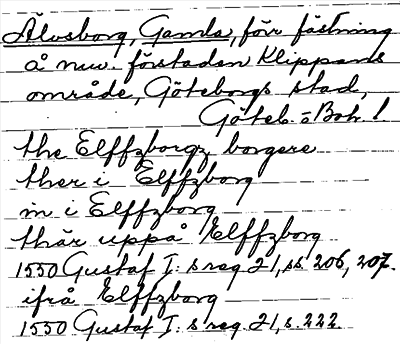 Älvsborg, Gamla, förr fästning
å nuv. förstaden Klippans
område, Göteborgs stad,
Göteb. o Boh. l
the Elffzborgz borgere
ther i Elffzborg
in i Elffzborg
thär uppå Elffzborg
1550 Gustaf I:s reg 21, ss 206, 207.
ifrå Elffzborg
1550 Gustaf I:s reg. 21, s. 222